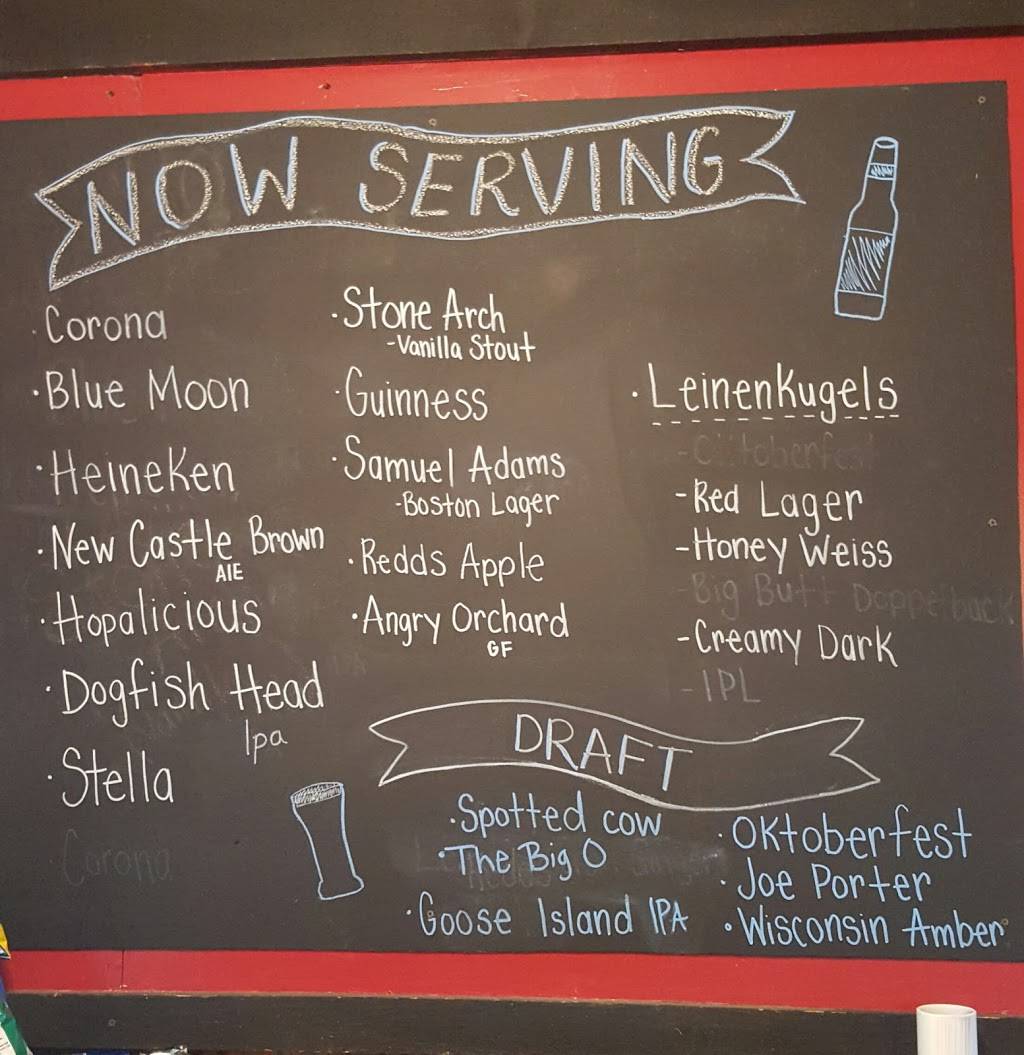 NOW SERVING
· Corona
· Blue Moon
· Heineken
· New Castle Brown
AlE
· Hopalicious
· Dogfish Head
Ipa
· Stella
Corona
· Stone Arch
-Vanilla Stout
· Guinness
· Samuel Adams
-Boston Lager
· Redds Apple
· Angry Orchard
GF
· Leinenkugels
-Oktoberfest
-Red Lager
-Honey Weiss
-Big Butt Doppelbock
-Creamy Dark
-IPL
DRAFT
· Spotted cow
· The Big O
· Goose Island IPA
· Oktoberfest
· Joe Porter
· Wisconsin Amber